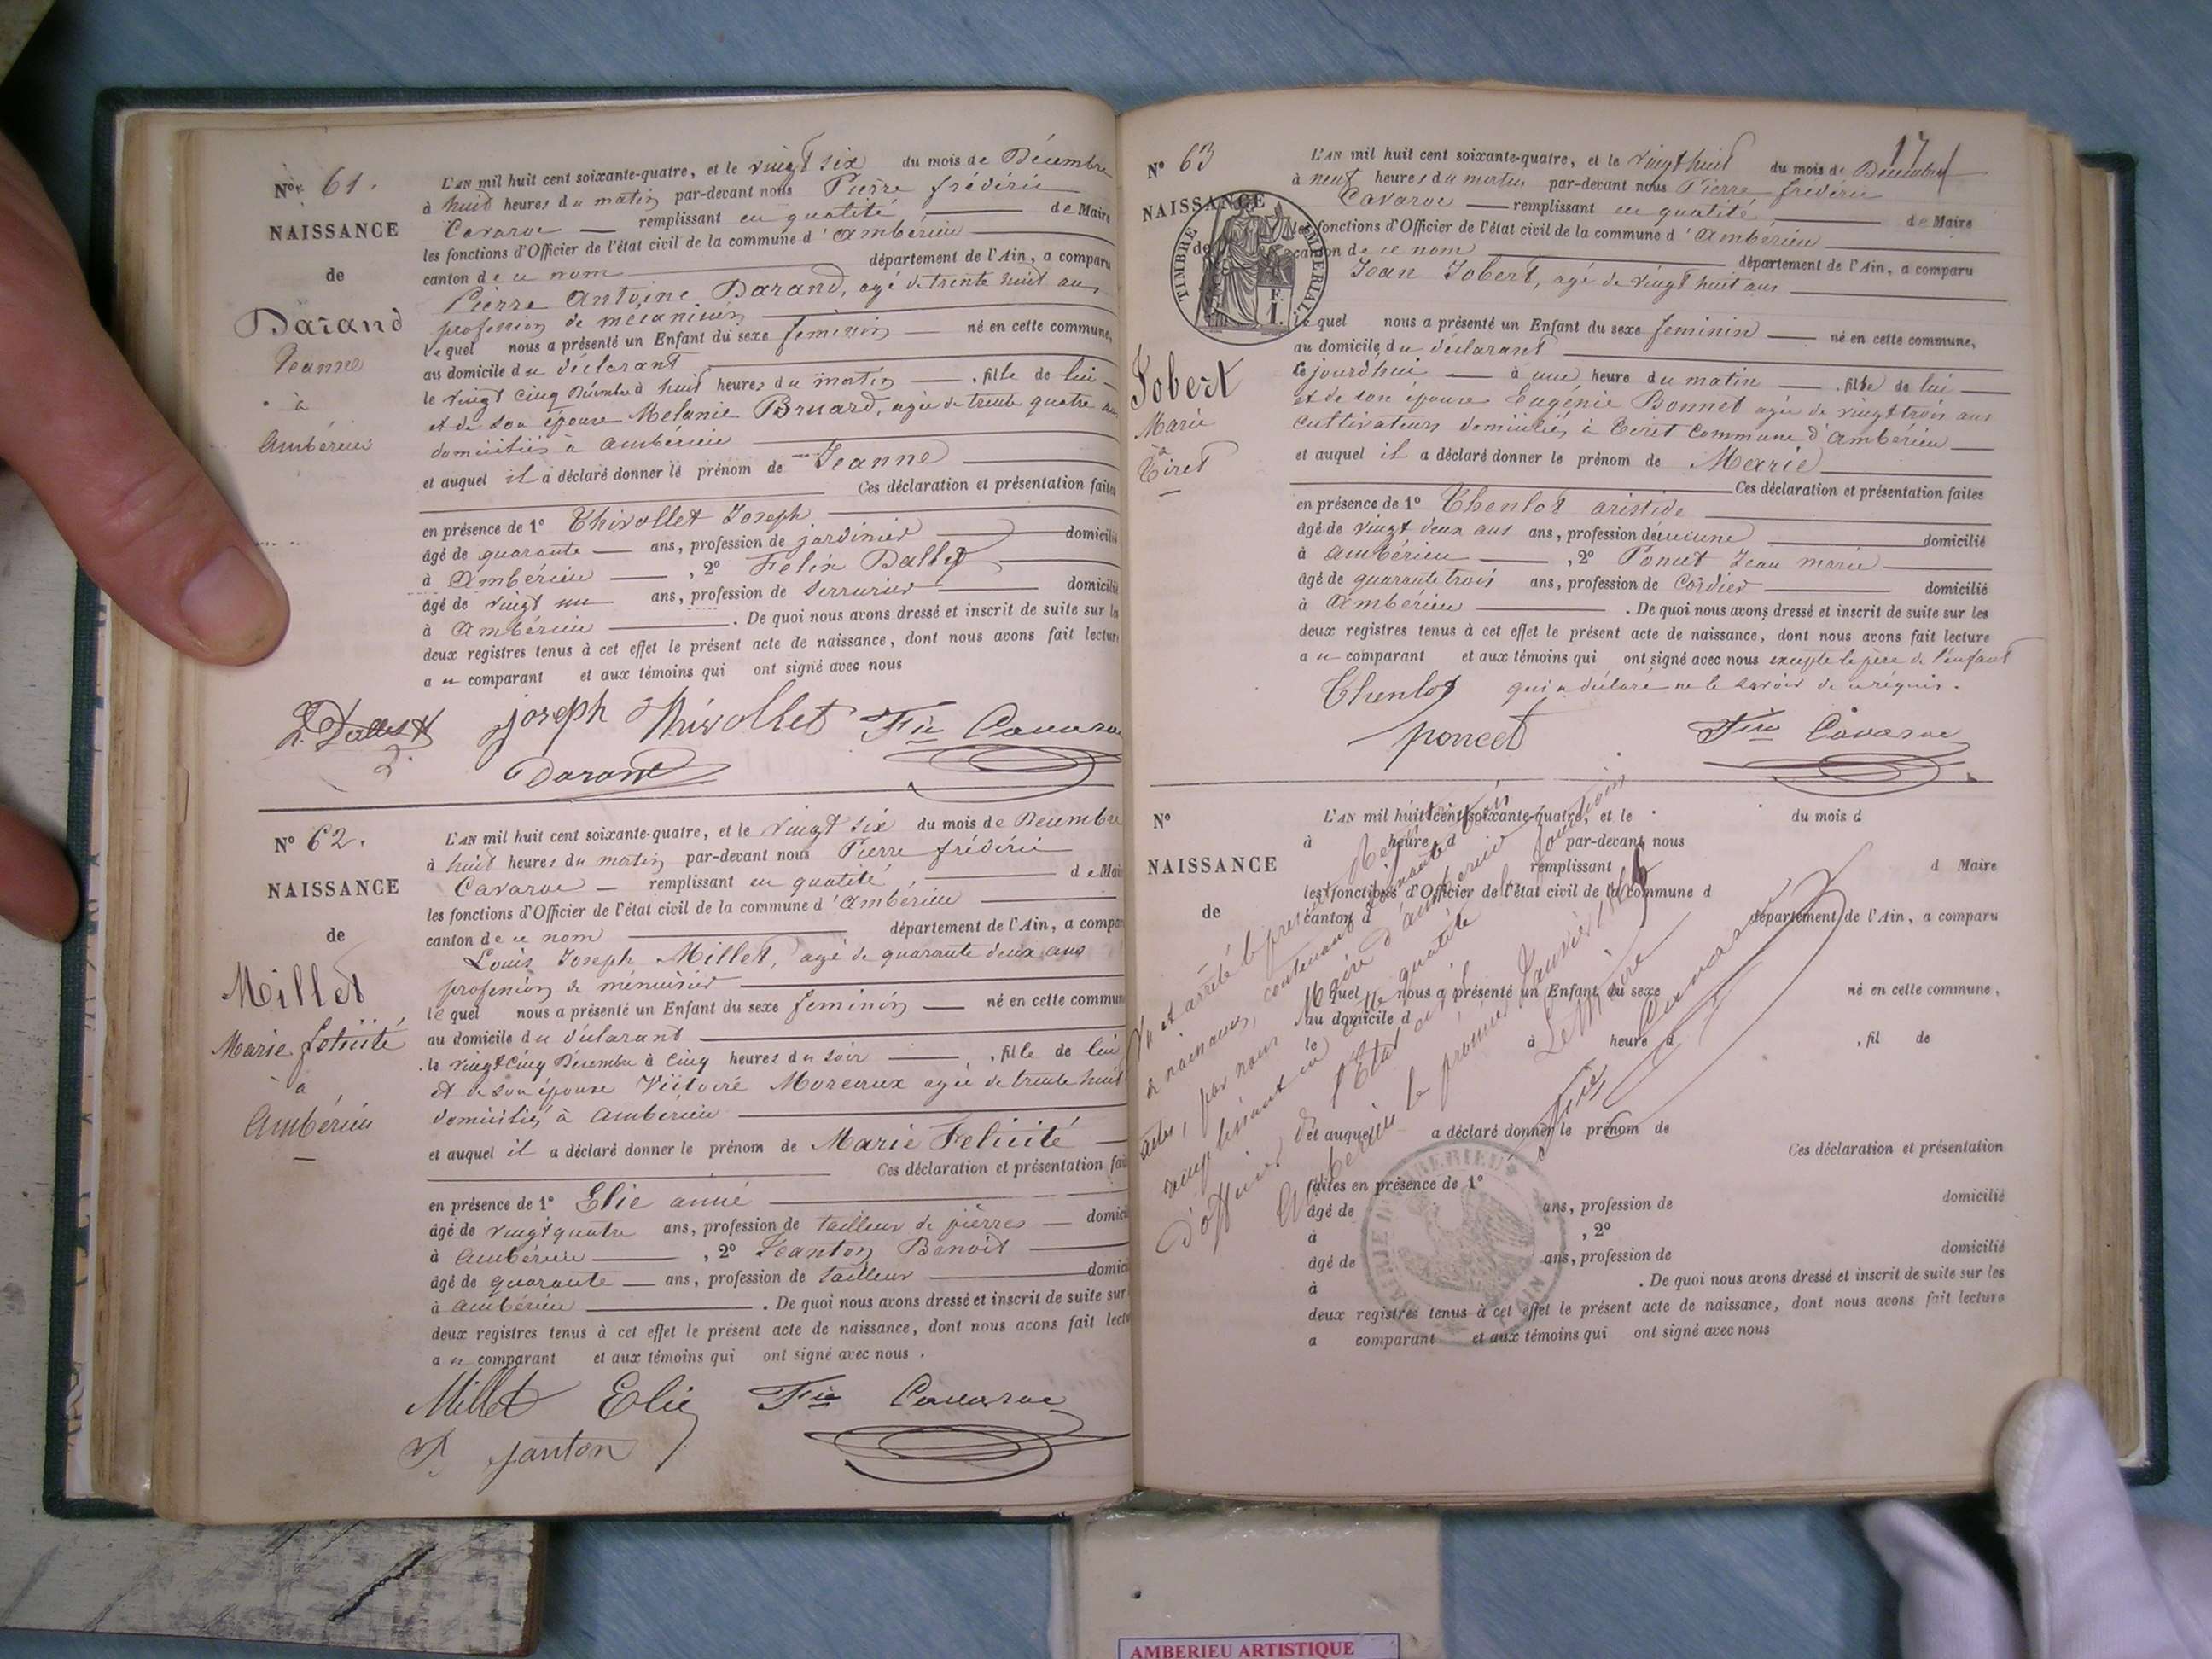 N° 61.
NAISSANCE
de
Darand
Jeanne
à
Ambérieu
L'AN mil huit cent soixante-quatre, et le vingt six du mois de Décembre
à huit heures du matin par-devant nous Pierre frédéric
Cavaroc remplissant en qualité de Maire
les fonctions d'Officier de l'état civil de la commune d'Ambérieu
canton de ce nom département de l'Ain, a comparu
Pierre Antoine Darand, agé de trente huit ans
profession de mécanicien
lequel nous a présenté un Enfant du sexe feminin né en cette commune,
au domicile du déclarant
le vingt cinq Décembre à huit heures du matin, fille de lui
et de son épouse Melanie Bruard, agée de trente quatre ans
domiciliés à ambérieu
et auquel il a déclaré donner le prénom de Jeanne
Ces déclaration et présentation faites
en présence de 1° Thivollet Joseph
âgé de quarante ans, profession de jardinier domicilié
à Ambérieu, 2° Felix Dallet
âgé de vingt un ans, profession de serrurier domicilié
à Ambérieu. De quoi nous avons dressé et inscrit de suite sur les
deux registres tenus à cet effet le présent acte de naissance, dont nous avons fait lecture
au comparant et aux témoins qui ont signé avec nous
joseph Thivollet Fic Cavaroc
Darand
N° 62.
NAISSANCE
de
Millet
Marie félicité
à
Ambérieu
L'AN mil huit cent soixante-quatre, et le vingt six du mois de Décembre
à huit heures du matin par-devant nous Pierre frédéric
Cavaroc remplissant en qualité de Mair
les fonctions d'Officier de l'état civil de la commune d'Ambérieu
canton de ce nom département de l'Ain, a compar
Louis Joseph Millet, agé de quarante deux ans
profession de menuisier
lequel nous a présenté un Enfant du sexe feminin né en cette commun
au domicile du déclarant
le vingt cinq Décembre à cinq heures du soir, fille de lui
et de son épouse Victoire Moreaux agée de trente huit
domiciliés à ambérieu
et auquel il a déclaré donner le prénom de Marie Felicité
Ces déclaration et présentation fai
en présence de 1° Elie aimé
âgé de vingt quatre ans, profession de tailleur de pierres domici
à ambérieu, 2° Jeanton Benoit
âgé de quarante ans, profession de tailleur domici
à ambérieu. De quoi nous avons dressé et inscrit de suite sur
deux registres tenus à cet effet le présent acte de naissance, dont nous avons fait lectu
au comparant et aux témoins qui ont signé avec nous.
Millet Elie Fic Cavaroc
janton
17
N° 63
NAISSANCE
de
TIMBRE IMPERIAL
F.
1.
Jobert
Marie
à
Tiret
L'AN mil huit cent soixante-quatre, et le vingt huit du mois de Décembre
à neuf heures du matin par-devant nous Pierre frédéric
Cavaroc remplissant en qualité de Maire
les fonctions d'Officier de l'état civil de la commune d'Ambérieu
canton de ce nom département de l'Ain, a comparu
Jean Jobert, agé de vingt huit ans
lequel nous a présenté un Enfant du sexe feminin né en cette commune,
au domicile du déclarant
cejourd'hui à une heure du matin, fille de lui
et de son épouse Eugénie Bonnet agée de vingt trois ans
cultivateurs domiciliés à Tiret commune d'ambérieu
et auquel il a déclaré donner le prénom de Marie
Ces déclaration et présentation faites
en présence de 1° Chenlot aristide
âgé de vingt deux ans ans, profession de domicilié
à ambérieu, 2° Poncet Jean marie
âgé de quarante trois ans, profession de Cordier domicilié
à Ambérieu. De quoi nous avons dressé et inscrit de suite sur les
deux registres tenus à cet effet le présent acte de naissance, dont nous avons fait lecture
au comparant et aux témoins qui ont signé avec nous excepté le père de l'enfant
qui a déclaré ne le savoir de ce réquis.
Chenlot
poncet Fic Cavaroc
N°
NAISSANCE
de
L'AN mil huit cent soixante-quatre, et le du mois d
à heure d par-devant nous
remplissant d Maire
les fonctions d'Officier de l'état civil de la commune d
canton d département de l'Ain, a comparu
lequel nous a présenté un Enfant du sexe né en cette commune,
au domicile d
le à heure d, fil de
et auquel a déclaré donner le prénom de
Ces déclaration et présentation
faites en présence de 1°
âgé de ans, profession de domicilié
à, 2°
âgé de ans, profession de domicilié
à. De quoi nous avons dressé et inscrit de suite sur les
deux registres tenus à cet effet le présent acte de naissance, dont nous avons fait lecture
a comparant et aux témoins qui ont signé avec nous
Vu et arrêté le présent Registre
de naissances, contenant soixante trois
actes, par nous Maire d'ambérieu
remplissant en cette qualité les fonctions
d'officier de l'Etat civil
Ambérieu le premier Janvier 1865
Le Maire
Fic Cavaroc
MAIRIE D'AMBERIEU
AIN
AMBERIEU ARTISTIQUE